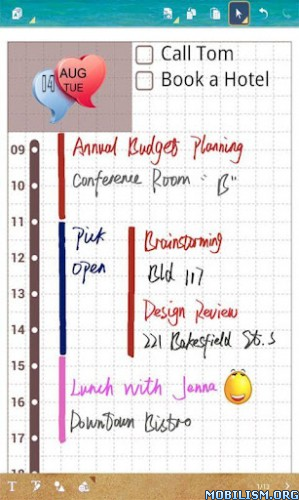 14
AUG
TUE
Call Tom
Book a Hotel
09
Annual Budget Planning
10
Conference Room "B"
11
Pick
Brainstorming
12
Open
Bld 117
13
Design Review
14
221 Bakesfield St.s
15
Lunch with Jenna
16
DownTown Bistro
17
T
1/13
MOBILISM.ORG